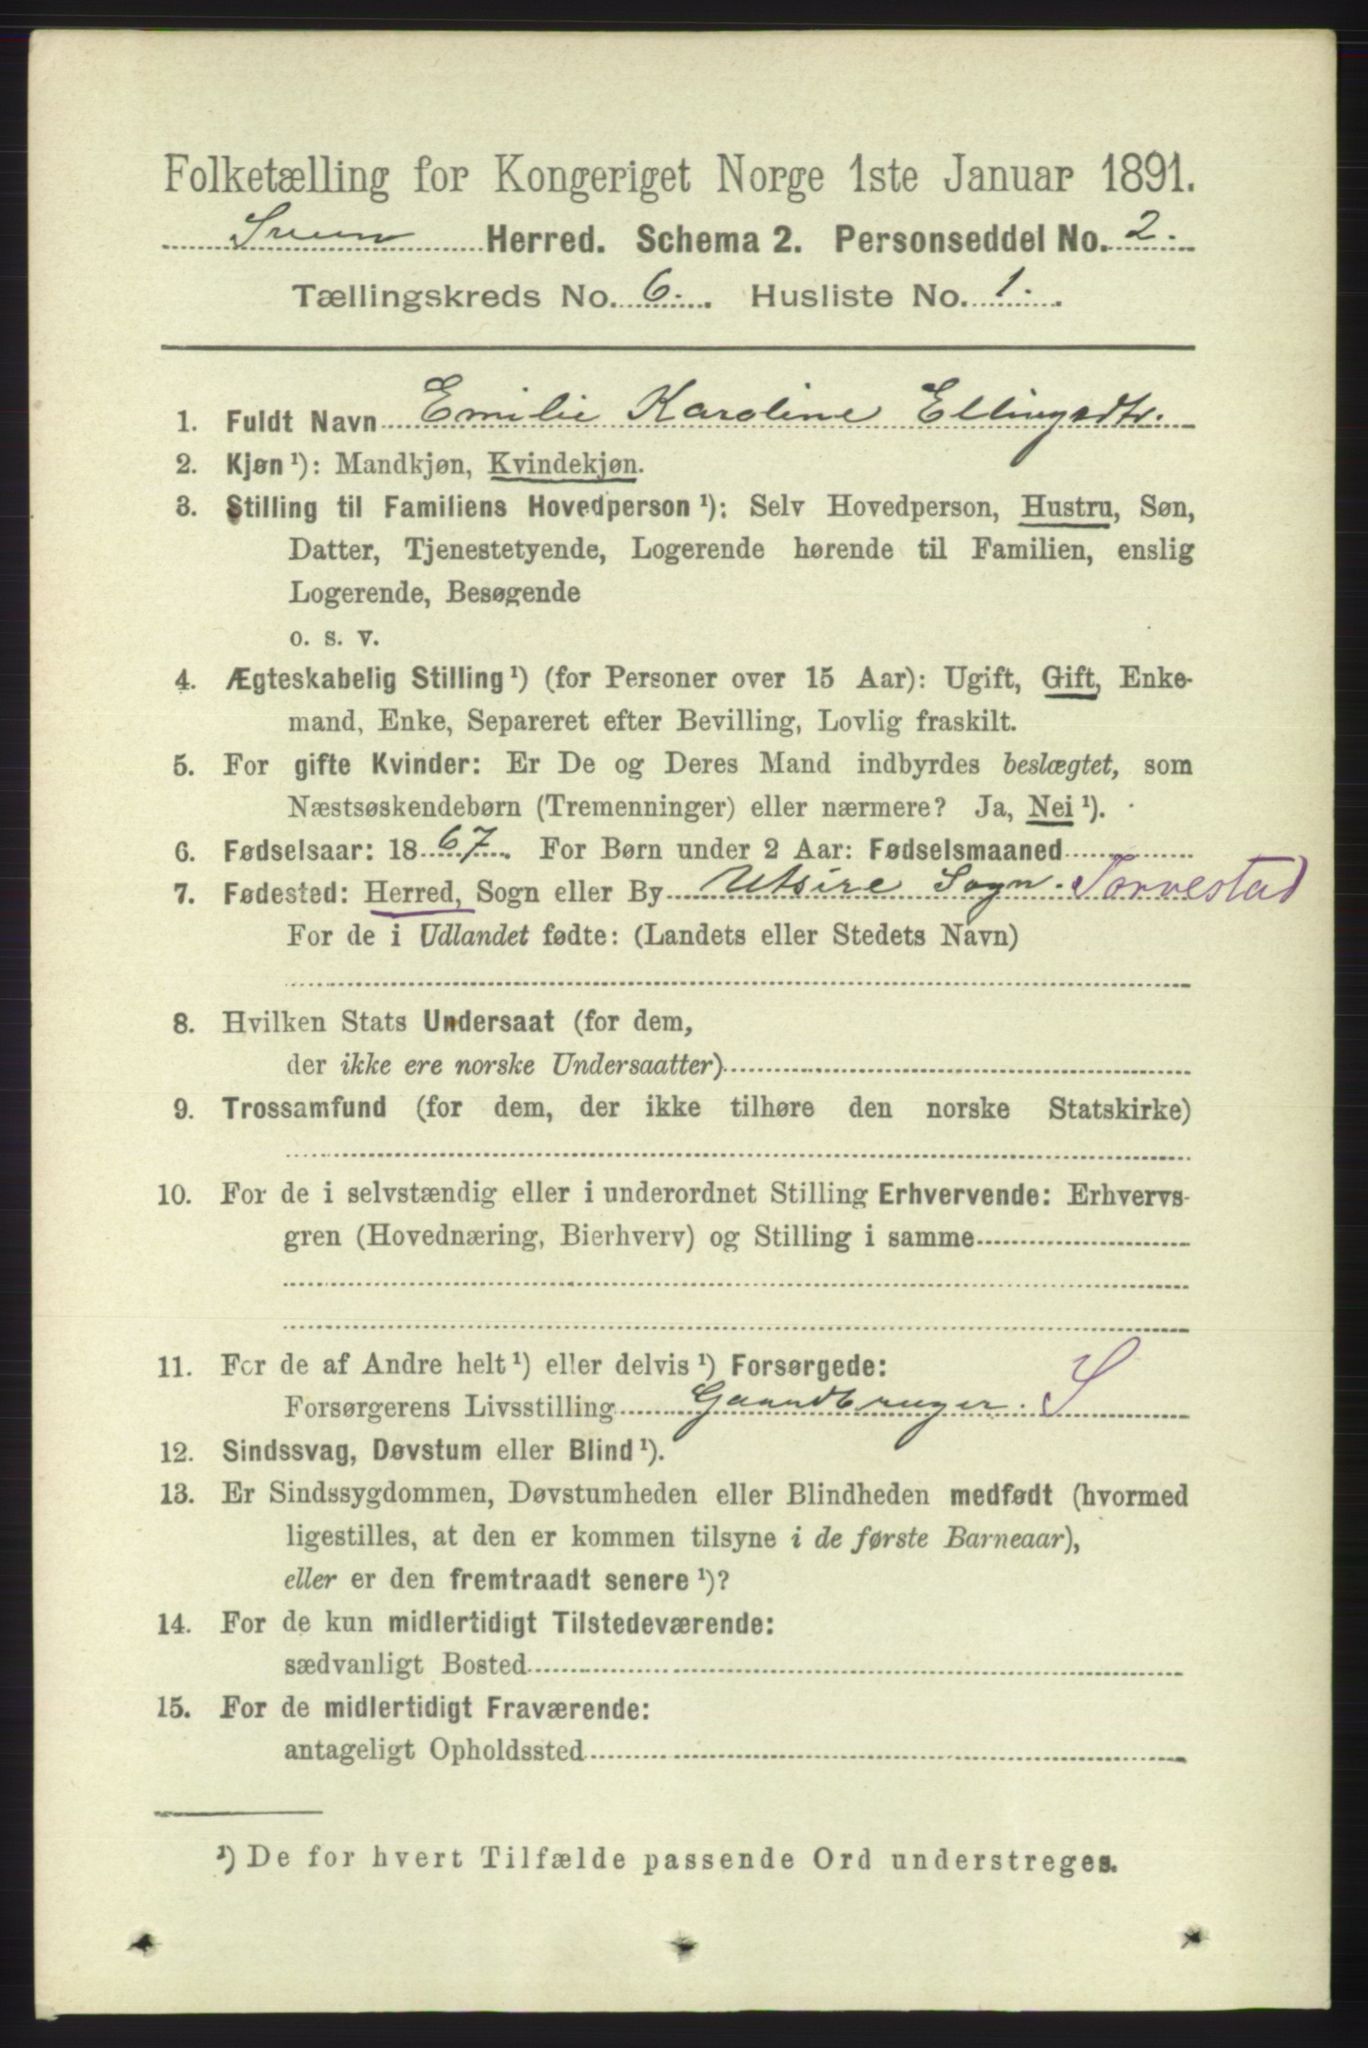 Folketælling for Kongeriget Norge 1ste Januar 1891.
Herred. Schema 2. Personseddel No. 2.
Tællingskreds No. 6. Husliste No. 1.
1. Fuldt Navn Emilie Karoline Ellingsdtr.
2. Kjøn ¹): Mandkjøn, Kvindekjøn.
3. Stilling til Familiens Hovedperson ¹): Selv Hovedperson, Hustru, Søn,
Datter, Tjenestetyende, Logerende hørende til Familien, enslig
Logerende, Besøgende
o. s. v.
4. Ægteskabelig Stilling ¹) (for Personer over 15 Aar): Ugift, Gift, Enke-
mand, Enke, Separeret efter Bevilling, Lovlig fraskilt.
5. For gifte Kvinder: Er De og Deres Mand indbyrdes beslægtet, som
Næstsøskendebørn (Tremenninger) eller nærmere? Ja, Nei ¹).
6. Fødselsaar: 1867. For Børn under 2 Aar: Fødselsmaaned
7. Fødested: Herred, Sogn eller By Utsire Sogn. Torvestad
For de i Udlandet fødte: (Landets eller Stedets Navn)
8. Hvilken Stats Undersaat (for dem,
der ikke ere norske Undersaatter)
9. Trossamfund (for dem, der ikke tilhøre den norske Statskirke)
10. For de i selvstændig eller i underordnet Stilling Erhvervende: Erhvervs-
gren (Hovednæring, Bierhverv) og Stilling i samme
11. For de af Andre helt ¹) eller delvis ¹) Forsørgede:
Forsørgerens Livsstilling Gaardbruger. S
12. Sindssvag, Døvstum eller Blind ¹).
13. Er Sindssygdommen, Døvstumheden eller Blindheden medfødt (hvormed
ligestilles, at den er kommen tilsyne i de første Barneaar),
eller er den fremtraadt senere ¹)?
14. For de kun midlertidigt Tilstedeværende:
sædvanligt Bosted
15. For de midlertidigt Fraværende:
antageligt Opholdssted
¹) De for hvert Tilfælde passende Ord understreges.